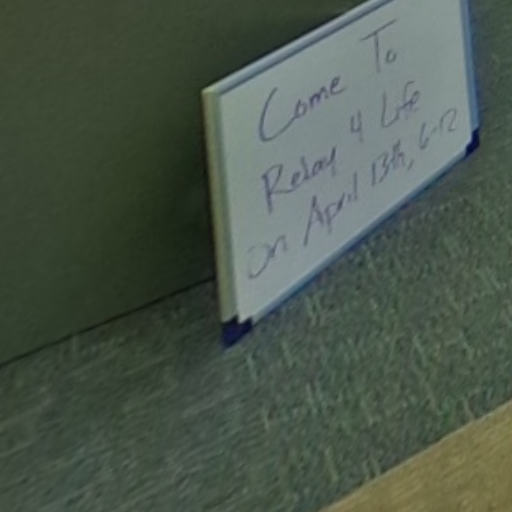 Come To
Relay 4 Life
on April 13th, 6-12